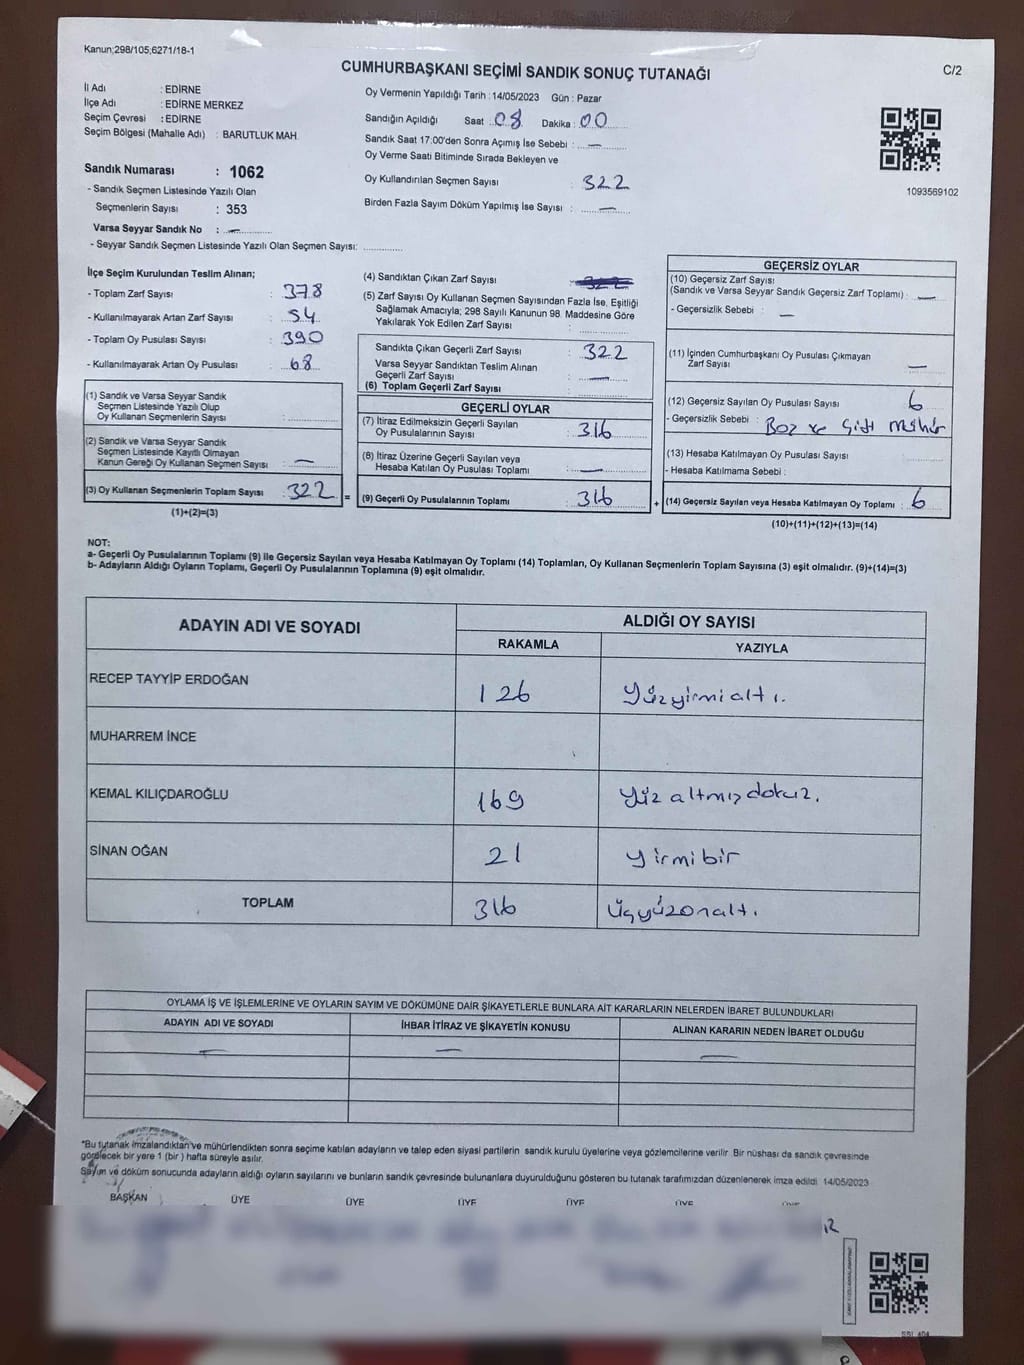 Kanun;298/105;6271/18-1
CUMHURBAŞKANI SEÇİMİ SANDIK SONUÇ TUTANAĞI
C/2
İl Adı : EDİRNE
İlçe Adı : EDİRNE MERKEZ
Seçim Çevresi : EDİRNE
Seçim Bölgesi (Mahalle Adı) : BARUTLUK MAH.
Sandık Numarası : 1062
- Sandık Seçmen Listesinde Yazılı Olan
Seçmenlerin Sayısı : 353
Varsa Seyyar Sandık No : —
- Seyyar Sandık Seçmen Listesinde Yazılı Olan Seçmen Sayısı:
Oy Vermenin Yapıldığı Tarih : 14/05/2023 Gün : Pazar
Sandığın Açıldığı Saat 08 Dakika : 00
Sandık Saat 17:00'den Sonra Açımış İse Sebebi : —
Oy Verme Saati Bitiminde Sırada Bekleyen ve
Oy Kullandırılan Seçmen Sayısı : 322
Birden Fazla Sayım Döküm Yapılmış İse Sayısı : —
1093569102
İlçe Seçim Kurulundan Teslim Alınan;
- Toplam Zarf Sayısı : 378
- Kullanılmayarak Artan Zarf Sayısı : 54
- Toplam Oy Pusulası Sayısı : 390
- Kullanılmayarak Artan Oy Pusulası : 68
(1) Sandık ve Varsa Seyyar Sandık
Seçmen Listesinde Yazılı Olup
Oy Kullanan Seçmenlerin Sayısı :
(2) Sandık ve Varsa Seyyar Sandık
Seçmen Listesinde Kayıtlı Olmayan
Kanun Gereği Oy Kullanan Seçmen Sayısı : —
(3) Oy Kullanan Seçmenlerin Toplam Sayısı : 322 =
(1)+(2)=(3)
(4) Sandıktan Çıkan Zarf Sayısı : 322
(5) Zarf Sayısı Oy Kullanan Seçmen Sayısından Fazla İse, Eşitliği
Sağlamak Amacıyla; 298 Sayılı Kanunun 98. Maddesine Göre
Yakılarak Yok Edilen Zarf Sayısı :
Sandıkta Çıkan Geçerli Zarf Sayısı : 322
Varsa Seyyar Sandıktan Teslim Alınan
Geçerli Zarf Sayısı : —
(6) Toplam Geçerli Zarf Sayısı
GEÇERLİ OYLAR
(7) İtiraz Edilmeksizin Geçerli Sayılan
Oy Pusulalarının Sayısı : 316
(8) İtiraz Üzerine Geçerli Sayılan veya
Hesaba Katılan Oy Pusulası Toplamı : —
(9) Geçerli Oy Pusulalarının Toplamı : 316 +
GEÇERSİZ OYLAR
(10) Geçersiz Zarf Sayısı
(Sandık ve Varsa Seyyar Sandık Geçersiz Zarf Toplamı) : —
- Geçersizlik Sebebi : —
(11) İçinden Cumhurbaşkanı Oy Pusulası Çıkmayan
Zarf Sayısı : —
(12) Geçersiz Sayılan Oy Pusulası Sayısı : 6
- Geçersizlik Sebebi : Boz ve çift mühür
(13) Hesaba Katılmayan Oy Pusulası Sayısı :
- Hesaba Katılmama Sebebi :
(14) Geçersiz Sayılan veya Hesaba Katılmayan Oy Toplamı : 6
(10)+(11)+(12)+(13)=(14)
NOT:
a- Geçerli Oy Pusulalarının Toplamı (9) ile Geçersiz Sayılan veya Hesaba Katılmayan Oy Toplamı (14) Toplamları, Oy Kullanan Seçmenlerin Toplam Sayısına (3) eşit olmalıdır. (9)+(14)=(3)
b- Adayların Aldığı Oyların Toplamı, Geçerli Oy Pusulalarının Toplamına (9) eşit olmalıdır.
ADAYIN ADI VE SOYADI
ALDIĞI OY SAYISI
RAKAMLA YAZIYLA
RECEP TAYYİP ERDOĞAN 126 Yüzyirmialtı.
MUHARREM İNCE
KEMAL KILIÇDAROĞLU 169 Yüz altmış dokuz.
SİNAN OĞAN 21 Yirmibir
TOPLAM 316 Üçyüzonaltı.
OYLAMA İŞ VE İŞLEMLERİNE VE OYLARIN SAYIM VE DÖKÜMÜNE DAİR ŞİKAYETLERLE BUNLARA AİT KARARLARIN NELERDEN İBARET BULUNDUKLARI
ADAYIN ADI VE SOYADI İHBAR İTİRAZ VE ŞİKAYETİN KONUSU ALINAN KARARIN NEDEN İBARET OLDUĞU
— — —
*Bu tutanak imzalandıktan ve mühürlendikten sonra seçime katılan adayların ve talep eden siyasi partilerin sandık kurulu üyelerine veya gözlemcilerine verilir. Bir nüshası da sandık çevresinde
görülecek bir yere 1 (bir) hafta süreyle asılır.
Sayım ve döküm sonucunda adayların aldığı oyların sayılarını ve bunların sandık çevresinde bulunanlara duyurulduğunu gösteren bu tutanak tarafımızdan düzenlenerek imza edildi. 14/05/2023
BAŞKAN ÜYE ÜYE ÜYE ÜYE ÜYE ÜYE